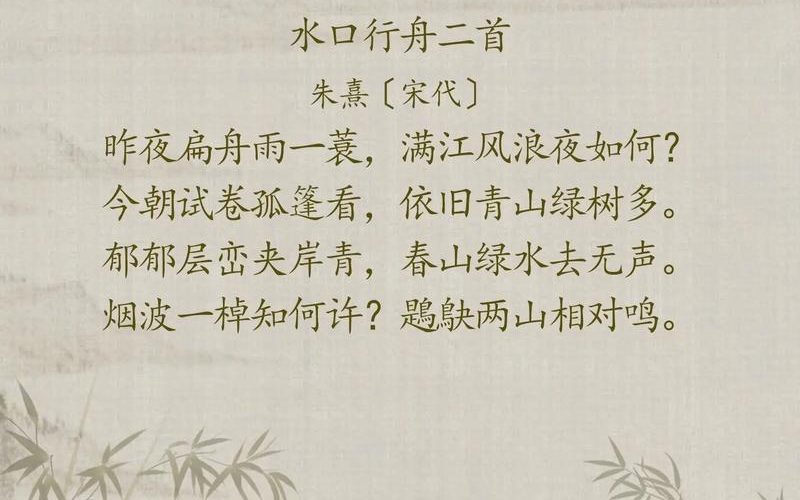 水口行舟二首
朱熹〔宋代〕
昨夜扁舟雨一蓑，满江风浪夜如何？
今朝试卷孤篷看，依旧青山绿树多。
郁郁层峦夹岸青，春山绿水去无声。
烟波一棹知何许？鶗鴃两山相对鸣。